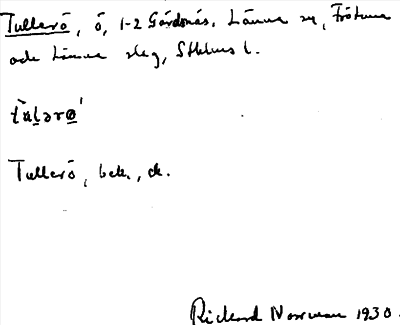 Tullerö, ö, 1-2 Gårdsnäs, Länna sn, Frötuna
och Länna slg, Sthlms l.
Tullerö, bek., ck.
Rickard Norrman 1930.